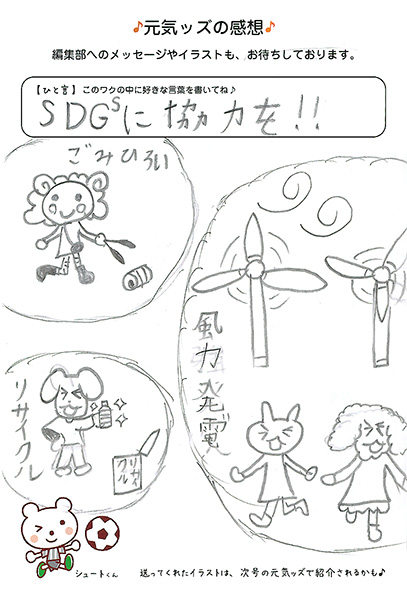 ♪元気ッズの感想♪
編集部へのメッセージやイラストも、お待ちしております。
【ひと言】このワクの中に好きな言葉を書いてね♪
SDGsに協力を!!
ごみひろい
風力発電
リサイクル
リサイクル
シュートくん
送ってくれたイラストは、次号の元気ッズで紹介されるかも♪